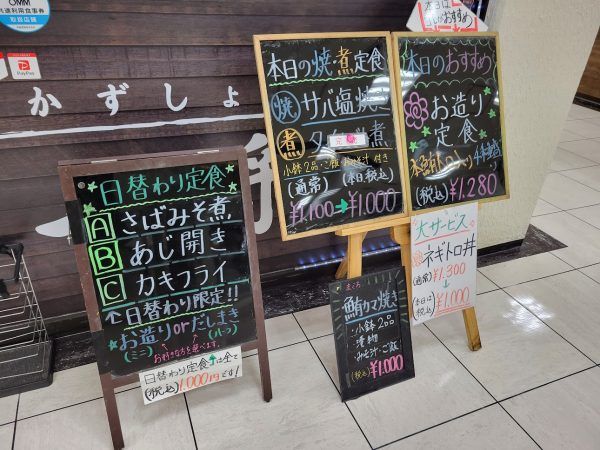 OMM
共通利用食事券
取扱店舗
PayPay
かずしょ
日替わり定食
A さばみそ煮
B あじ開き
C カキフライ
↑日替わり限定!!
お造り or だしまき
(ミニ)
(ハーフ)
お好きな方を選べます。
日替わり定食↑は全て
(税込)1,000円です!
本日の焼・煮定食
焼 サバ塩焼き
煮
小鉢2品・ご飯・みそ汁 付き
(通常) (本日税込)
¥1,100→¥1,000
本日のおすすめ
お造り
定食
(税込)¥1,280
大サービス
ネギトロ丼
(通常)
¥1,300
↓
(本日は税込)
¥1,000
まぐろ
鮪カマ焼き
・小鉢2品
・漬物
・みそ汁・ご飯
(税込)¥1,000